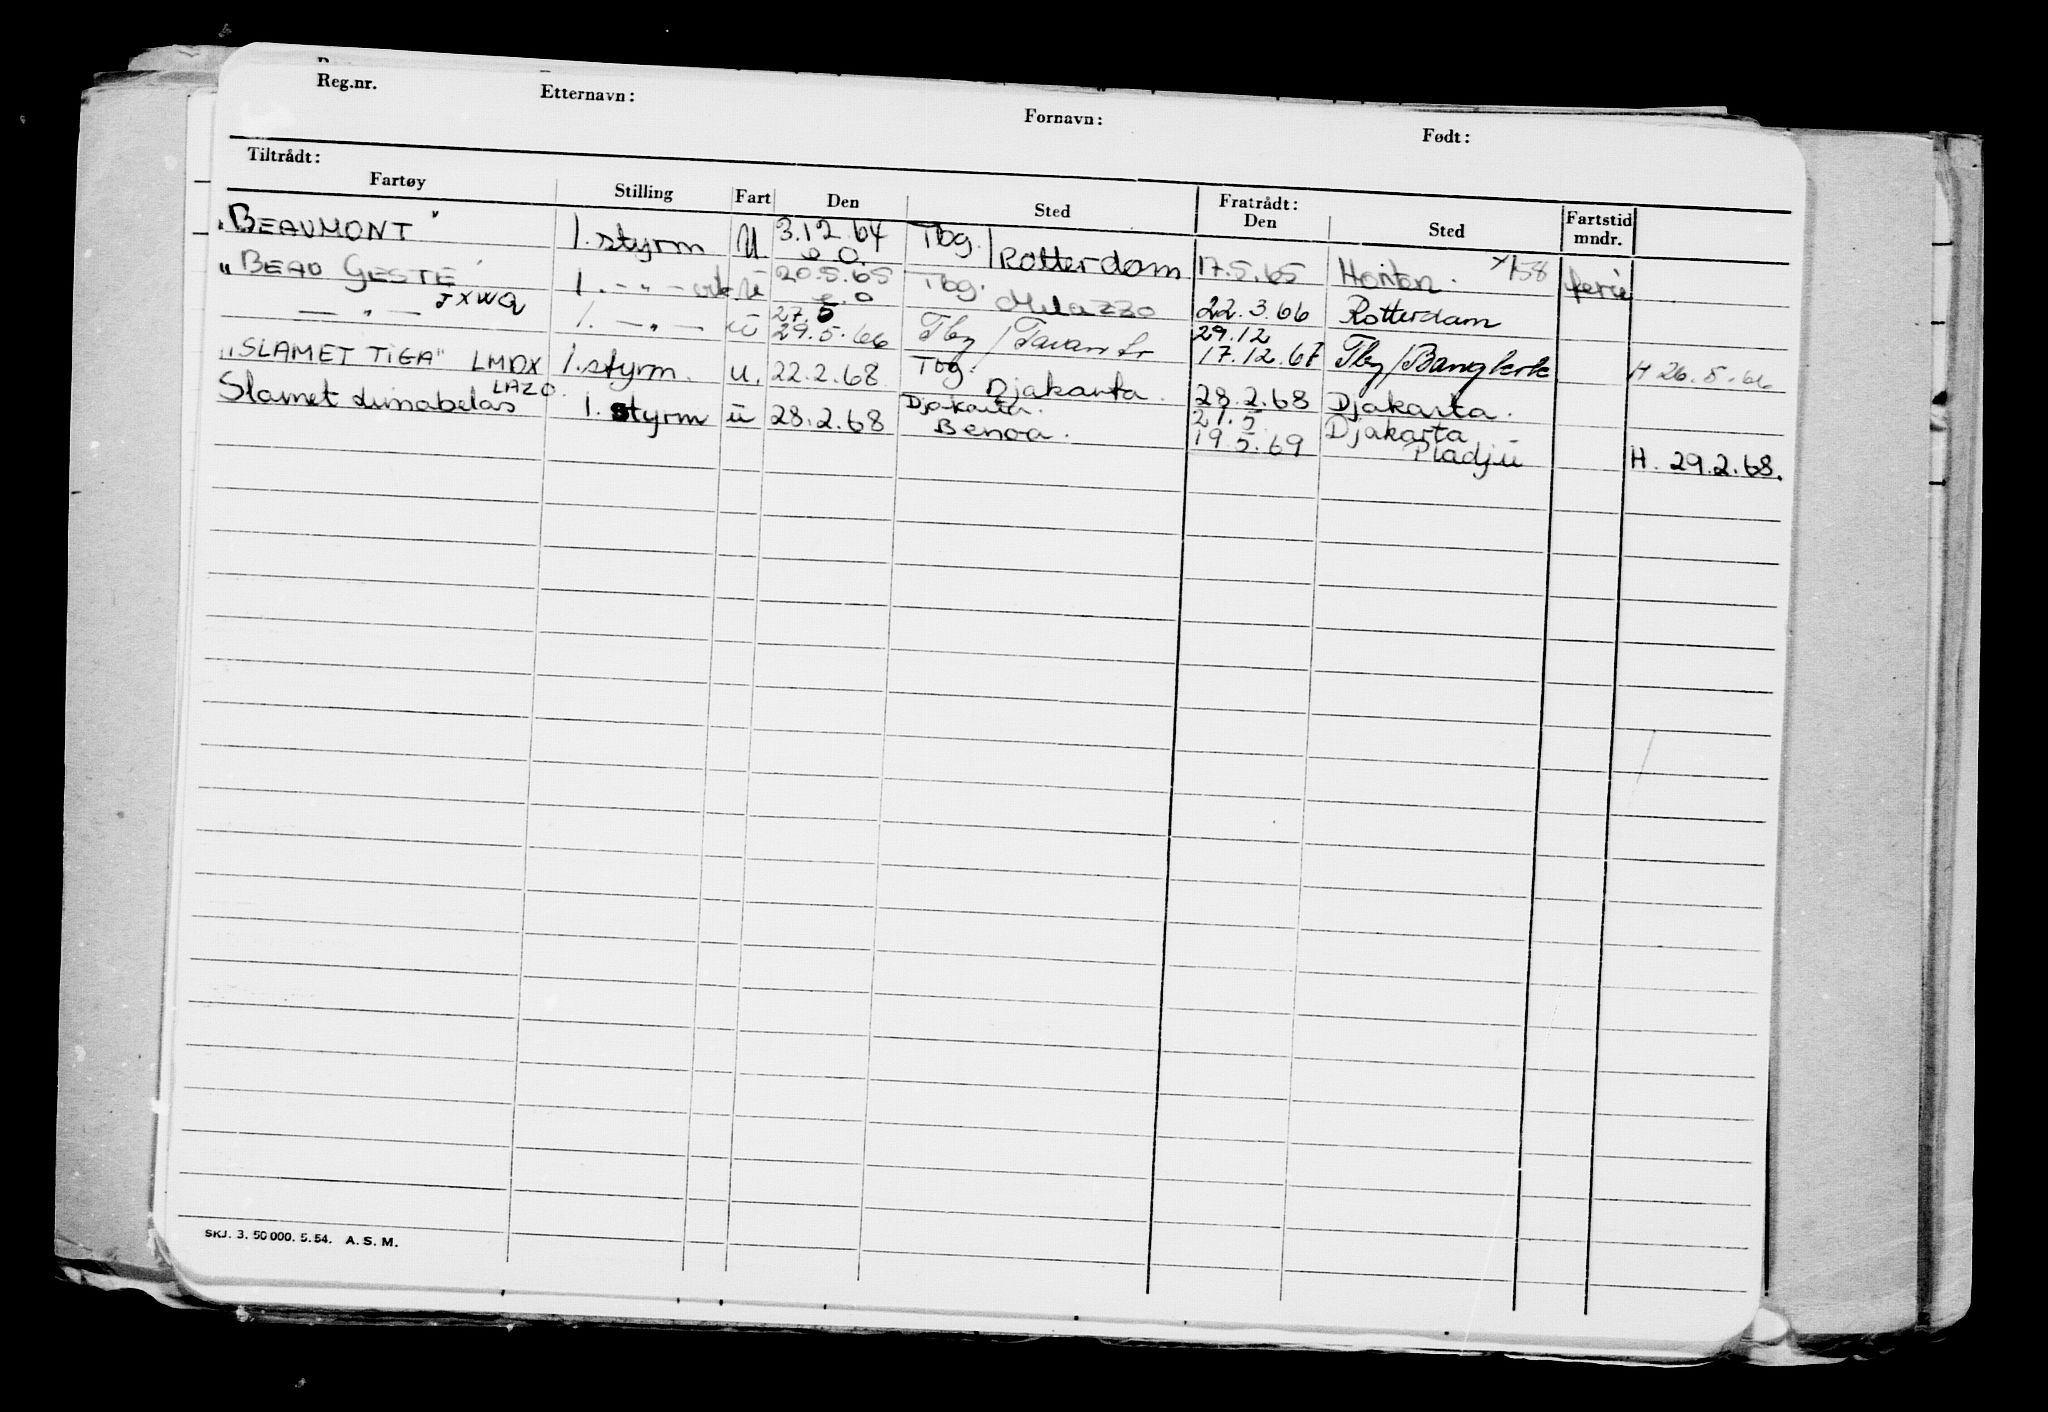 Reg.nr. Etternavn: Fornavn: Født:
Tiltrådt: Fratrådt:
Fartøy Stilling Fart Den Sted Den Sted Fartstid mndr.
"BEAUMONT" 1. styrm U 3.12.64 Tbg./Rotterdam 17.5.65 Horten. ferie
"BEAU GESTE" 1. -"- u 20.5.65 Tbg. Milazzo 22.3.66 Rotterdam
—"— JXWQ 1. —"— u 27.5 29.5.66 Tbg/ 29.12 17.12.67 Tbg/Bangkok H 26.5.66
"SLAMET TIGA" LMDX 1. styrm. u. 22.2.68 Tbg. Djakarta. 28.2.68 Djakarta.
Slamet limabelas LAZO. 1. styrm u 28.2.68 Djakarta. Benoa. 21.5 19.5.69 Djakarta Pladju H. 29.2.68.
SKJ. 3. 50 000. 5. 54. A. S. M.